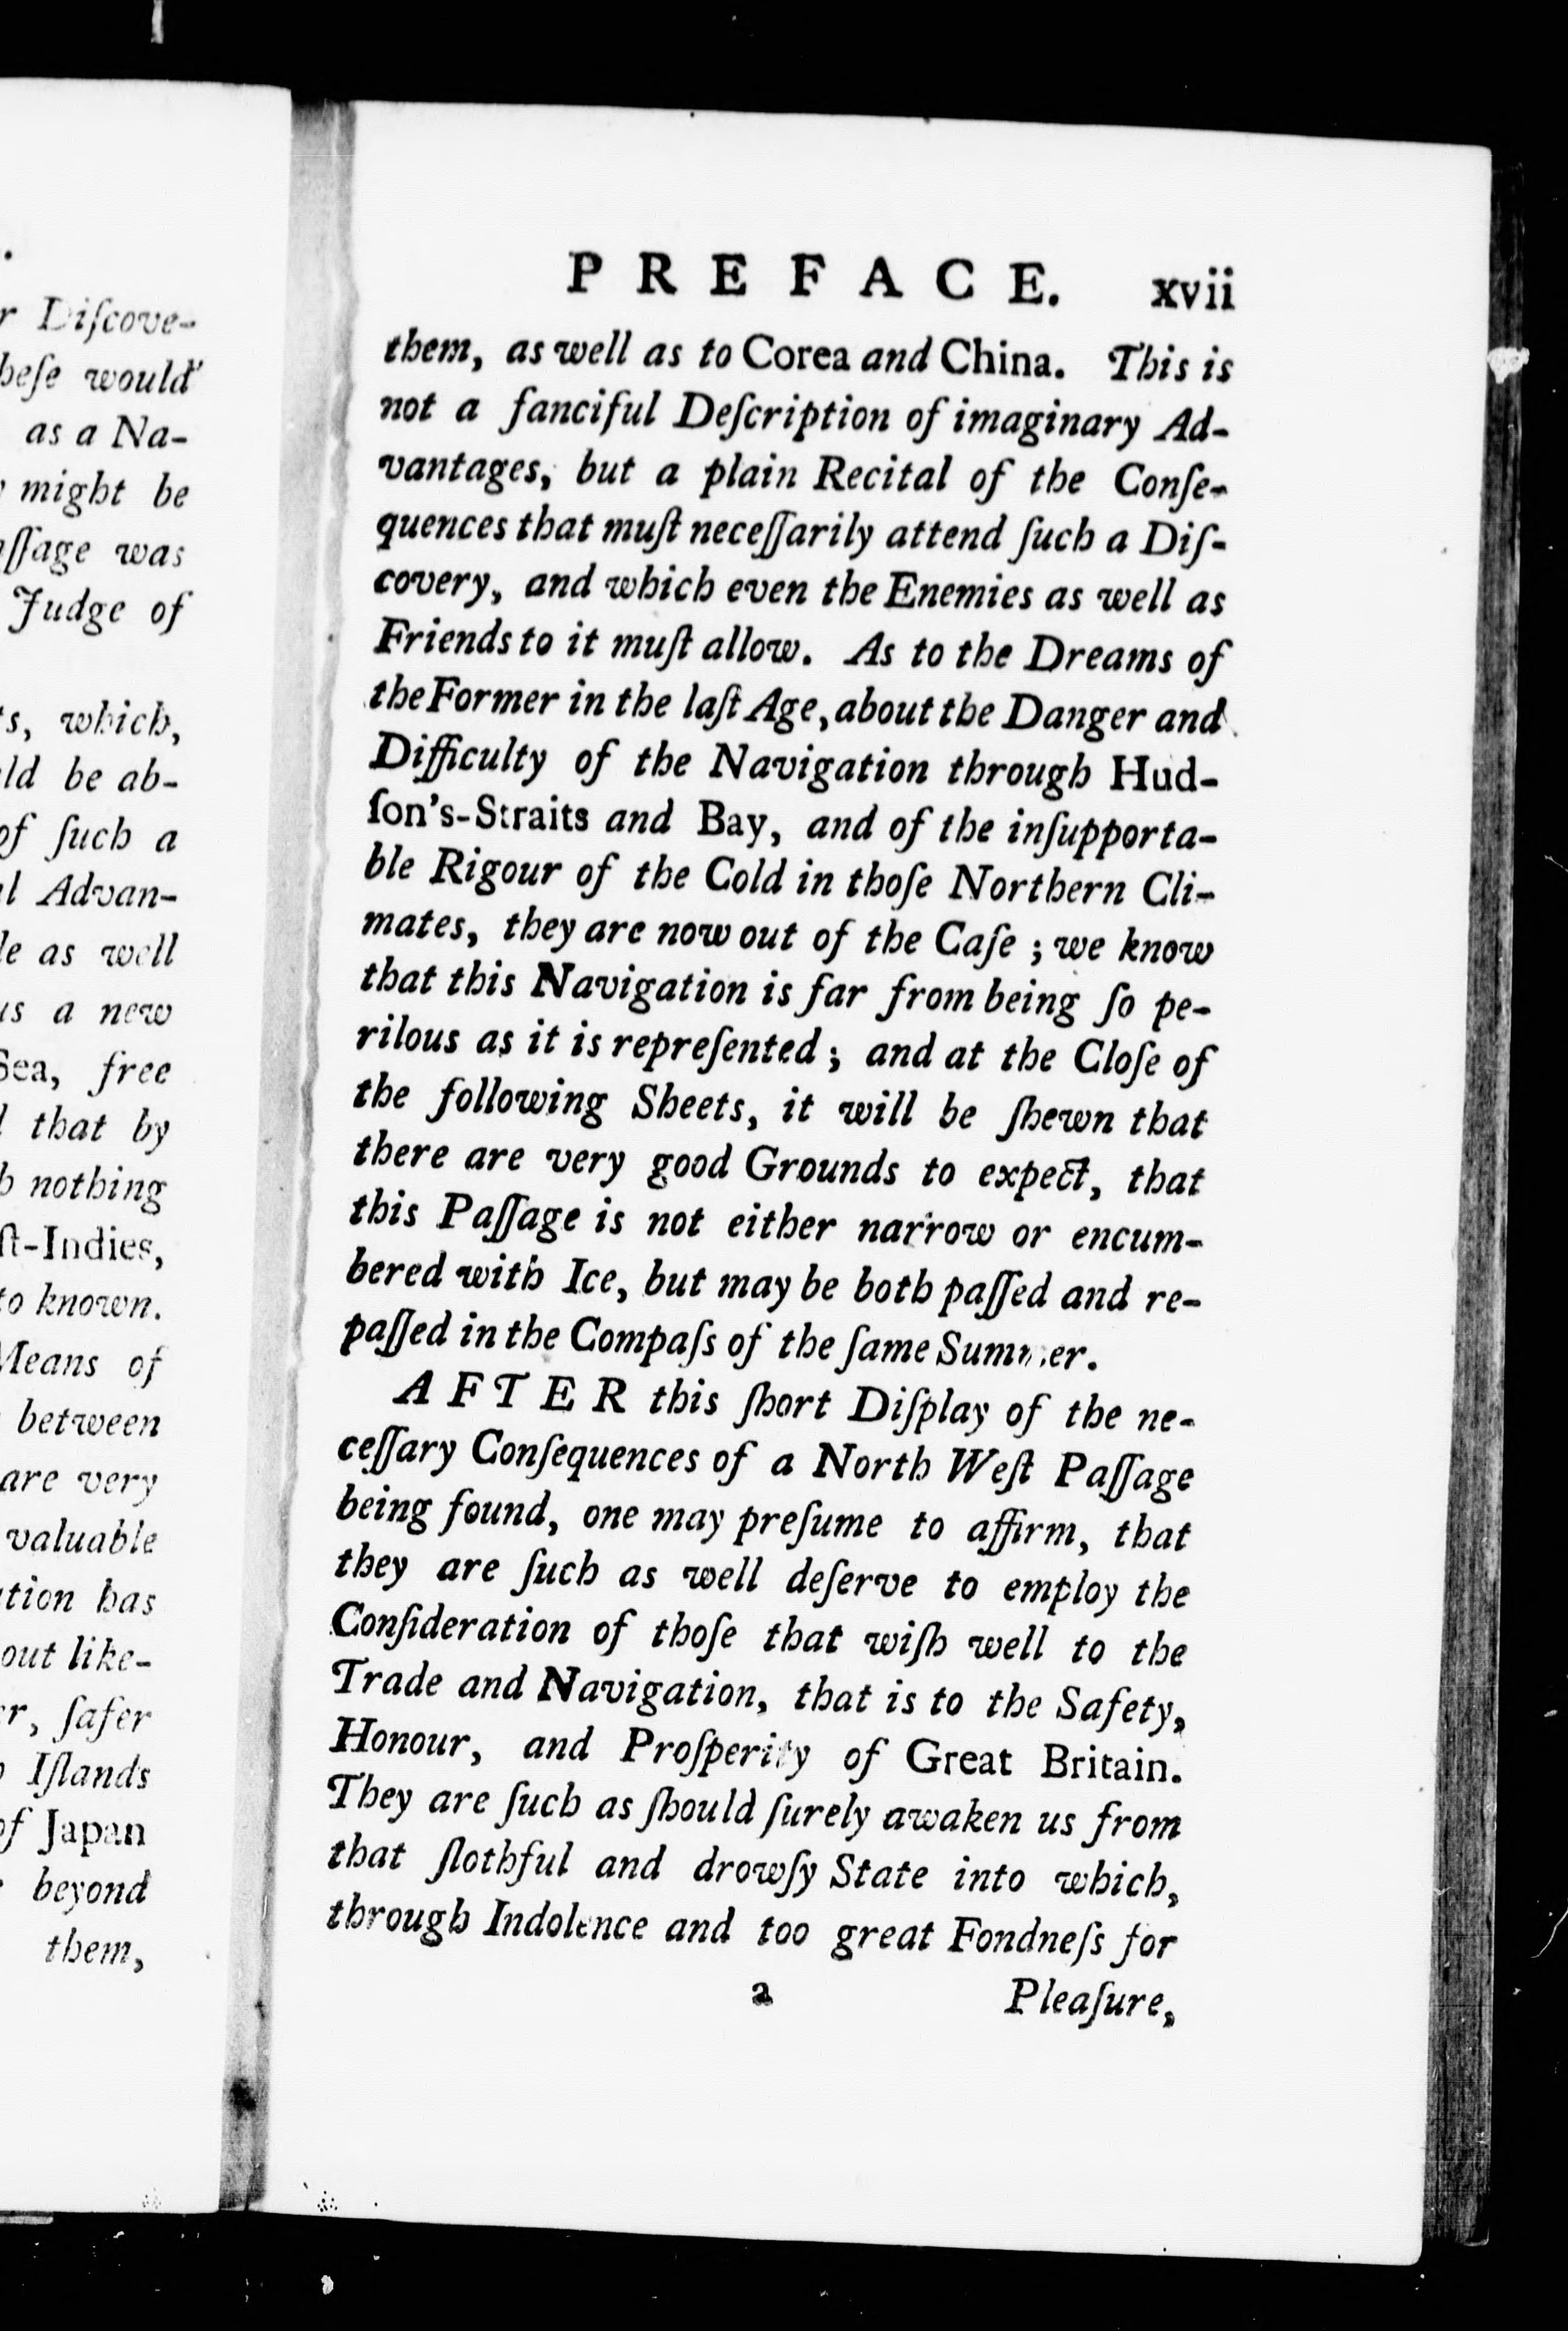 r Diſcove-
heſe would
as a Na-
might be
ſſage was
Judge of
s, which,
ld be ab-
of ſuch a
l Advan-
le as well
us a new
Sea, free
that by
nothing
ſt-Indies,
to known.
Means of
between
are very
valuable
ation has
out like-
er, ſafer
Iſlands
of Japan
beyond
them,
PREFACE. xvii
them, as well as to Corea and China. This is
not a fanciful Deſcription of imaginary Ad-
vantages, but a plain Recital of the Conſe-
quences that muſt neceſſarily attend ſuch a Diſ-
covery, and which even the Enemies as well as
Friends to it muſt allow. As to the Dreams of
the Former in the laſt Age, about the Danger and
Difficulty of the Navigation through Hud-
ſon's-Straits and Bay, and of the inſupporta-
ble Rigour of the Cold in thoſe Northern Cli-
mates, they are now out of the Caſe ; we know
that this Navigation is far from being ſo pe-
rilous as it is repreſented ; and at the Cloſe of
the following Sheets, it will be ſhewn that
there are very good Grounds to expect, that
this Paſſage is not either narrow or encum-
bered with Ice, but may be both paſſed and re-
paſſed in the Compaſs of the ſame Summer.
AFTER this ſhort Diſplay of the ne-
ceſſary Conſequences of a North Weſt Paſſage
being found, one may preſume to affirm, that
they are ſuch as well deſerve to employ the
Conſideration of thoſe that wiſh well to the
Trade and Navigation, that is to the Safety,
Honour, and Proſperity of Great Britain.
They are ſuch as ſhould ſurely awaken us from
that ſlothful and drowſy State into which,
through Indolence and too great Fondneſs for
a Pleaſure,